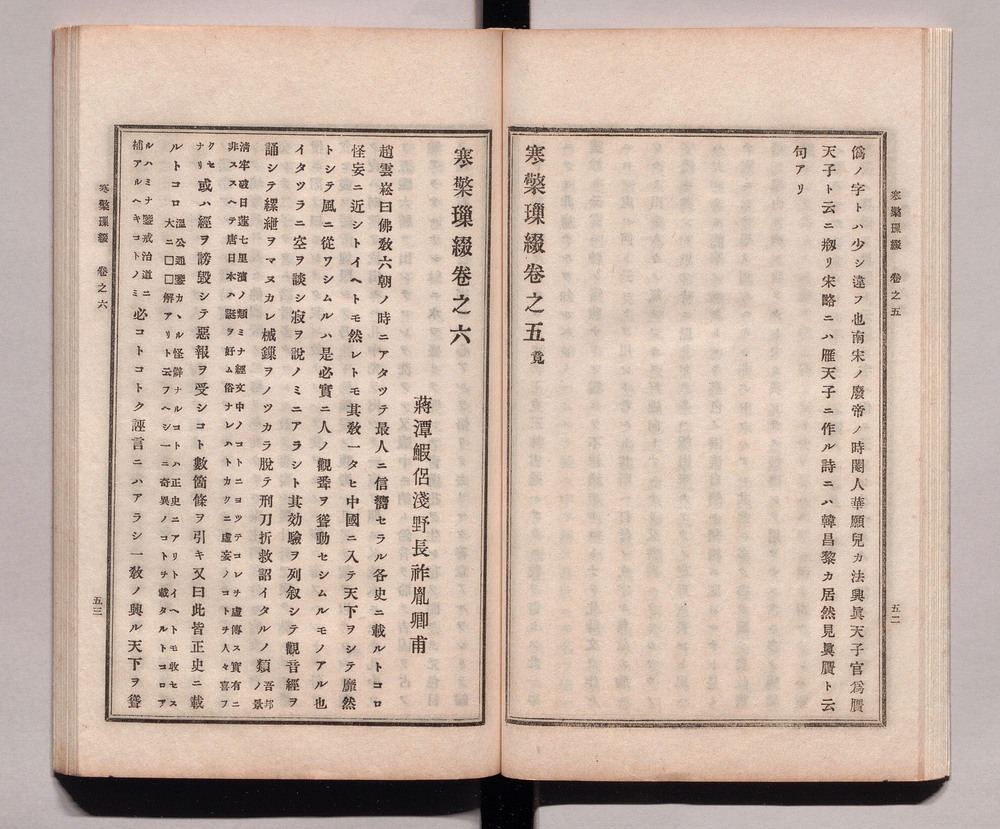 寒檠璅綴 卷之五
五二
僞ノ字トハ少シ違フ也南宋ノ廢帝ノ時閹人華願兒カ法興眞天子官爲贋
天子ト云ニ刱リ宋略ニハ雁天子ニ作ル詩ニハ韓昌黎カ居然見眞贋ト云
句アリ
寒檠璅綴卷之五竟
寒檠璅綴卷之六
蔣潭鰕侶淺野長祚胤卿甫
趙雲崧曰佛敎六朝ノ時ニアタツテ最人ニ信嚮セラル各史ニ載ルトコロ
怪妄ニ近シトイヘトモ然レトモ其敎一タヒ中國ニ入テ天下ヲシテ靡然
トシテ風ニ從ワシムルハ是必實ニ人ノ觀聾ヲ聳動セシムルモノアル也
イタツラニ空ヲ談シ寂ヲ說ノミニアラシト其効驗ヲ列叙シテ觀音經ヲ
誦シテ縲紲ヲマヌカレ械鏁ヲノツカラ脫テ刑刀折救詔イタルノ類吾邦ノ景
淸牢破日蓮七里濱ノ類ミナ經文中ノコトニヨツテコレヲ虛傳ス實有ニ
非ススヘテ唐日本ハ誕ヲ好ム俗ナレハトカクニ虛妄ノコトヲ人々喜フ
クセナリ或ハ經ヲ謗毀シテ惡報ヲ受シコト數箇條ヲ引キ又曰此皆正史ニ載
ルトコロ溫公通鑒カヽル怪僻ナルコトハ正史ニアリトイヘトモ收セス
大ニ□□解アリト云フヘシ一ニ奇異ノコトヲ載タルトコロア
ルハミナ鑒戒治道ニ
補アルヘキコトノミ必コトコトク誣言ニハアラシ一敎ノ興ル天下ヲ聳
寒檠璅綴 卷之六
五三